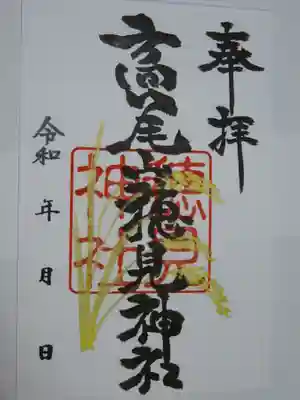 奉拝
高尾山穂見神社
穂見神社
令和 年 月 日